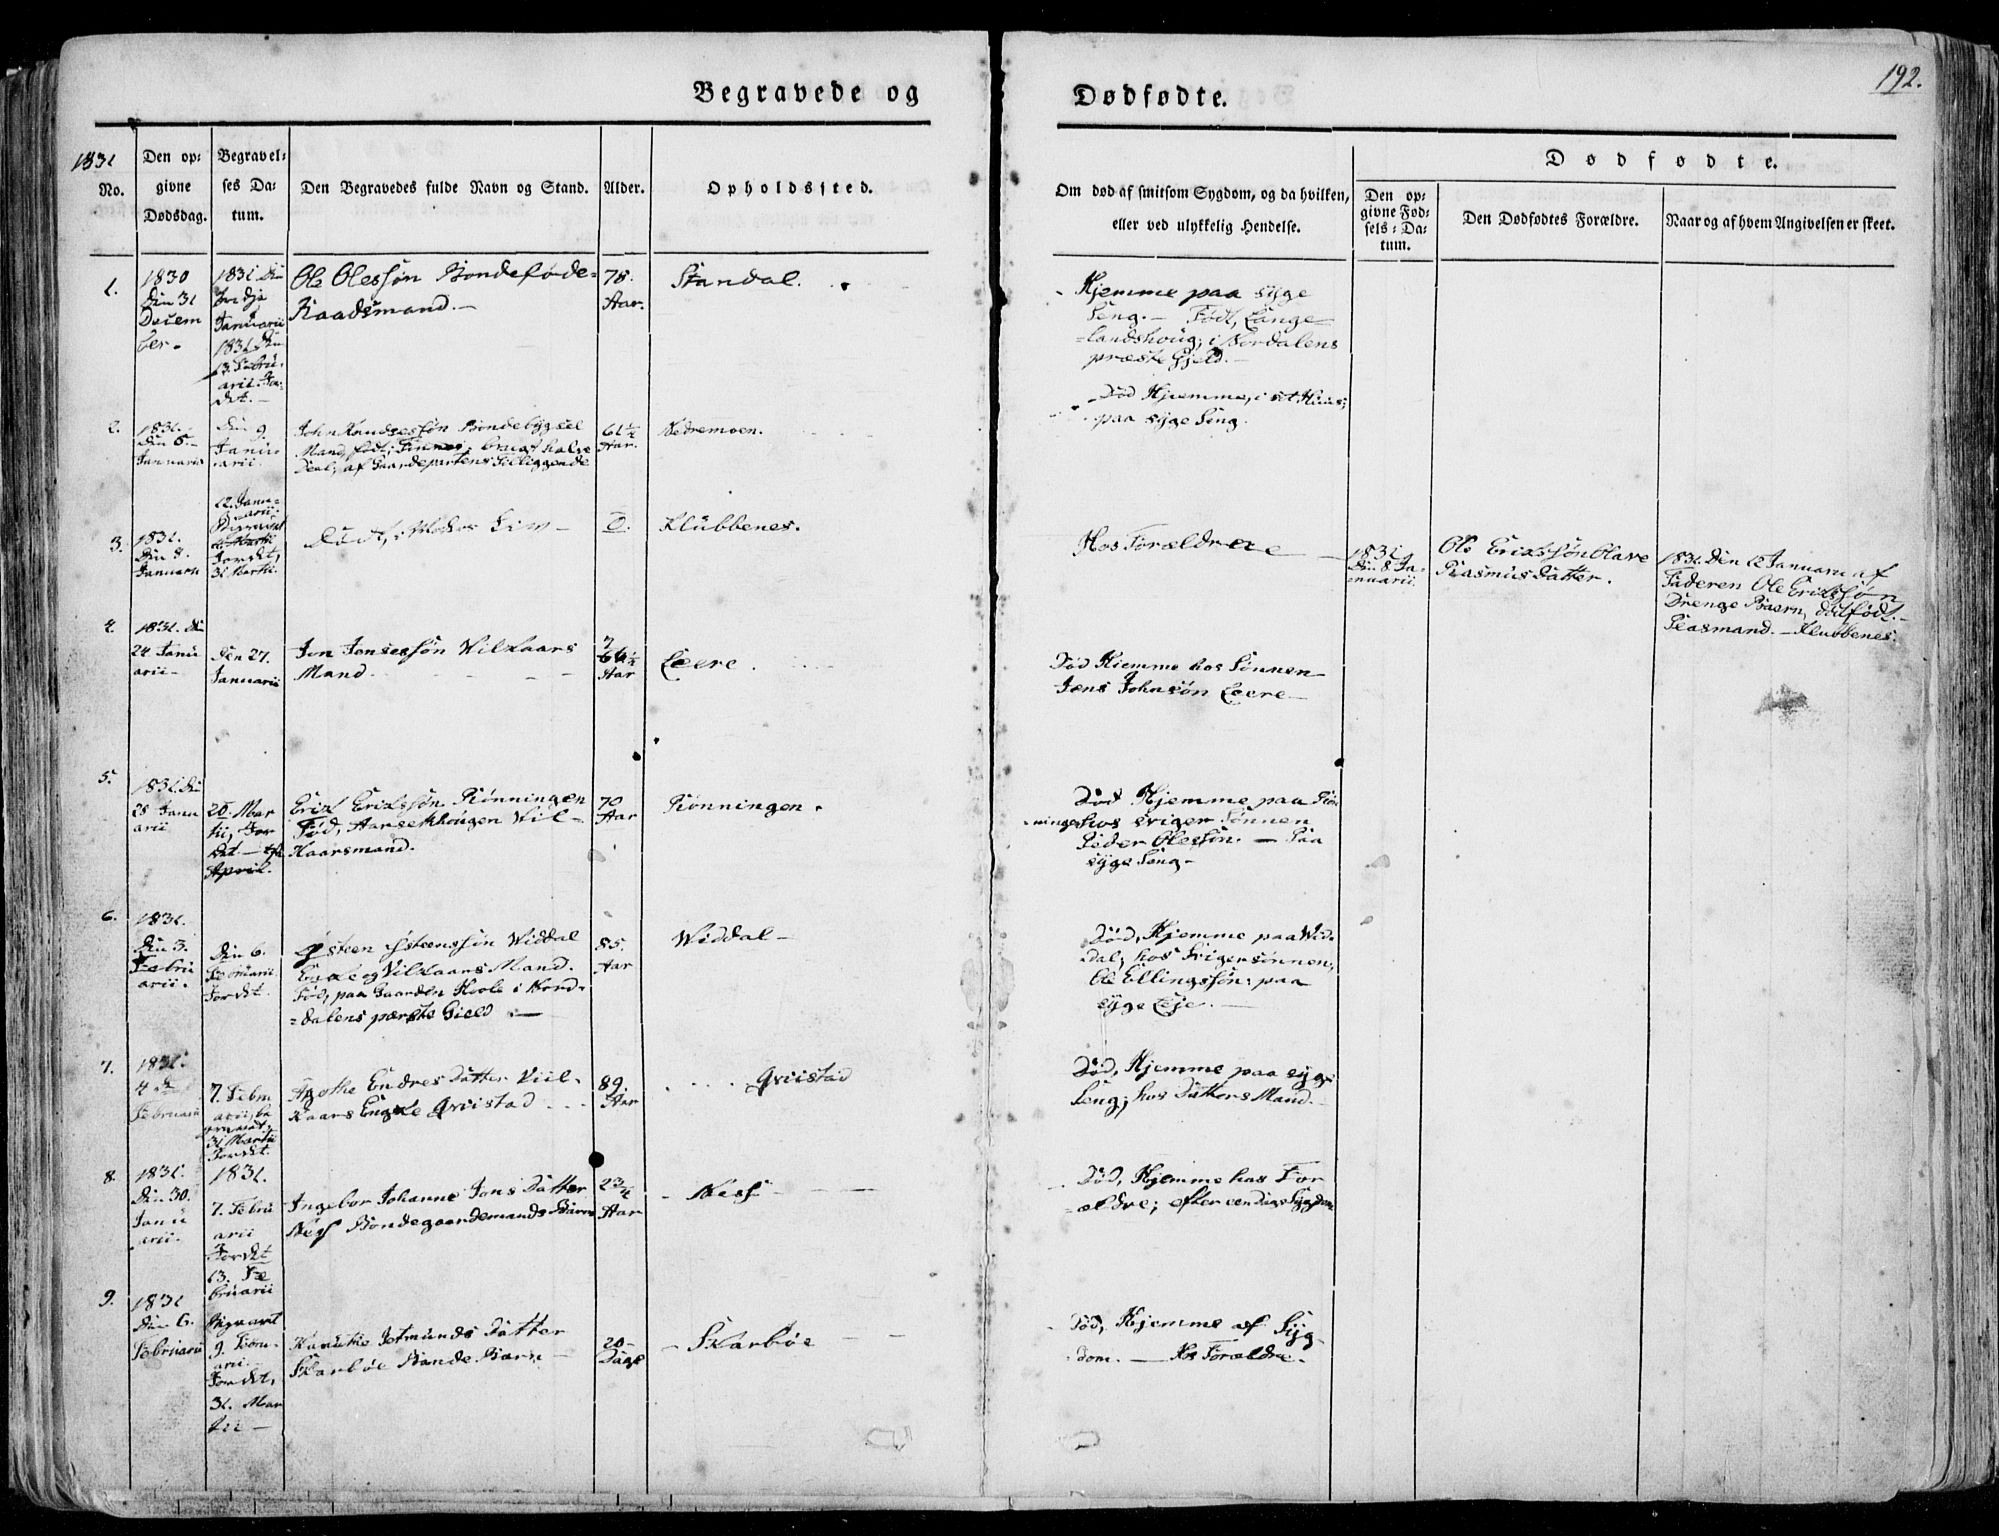 192.
Begravede og
Dødfødte.
1831
No.
Den op-
givne
Dødsdag.
Begravel-
ses Da-
tum.
Den Begravedes fulde Navn og Stand.
Alder.
Opholdssted.
Om død af smitsom Sygdom, og da hvilken,
eller ved ulykkelig Hendelse.
Dødfødte.
Den op-
givne Fød-
sels-Da-
tum.
Den Dødfødtes Forældre.
Naar og af hvem Angivelsen er skeet.
1.
1830
Din 31
Decem
ber.
1831 Din
tredje
Januarii
1831 Din
13. Febru-
arii. Jor-
det.
Ole Olessøn Bondeføde-
Raadsmand.
78.
Aar.
Standal.
Hjemme paa syge
Seng. - Født, Lange-
landshoug; i Nordalens
præste Gjeld.
2.
1831.
Din 5.
Januarii
Din 9.
Janu
arii.
John Knudsessøn Bondebygsel
Mand, født; brugt halve
Deel; af Gaardeparten
61½
Aar.
Nedremoen.
Død Hjemme, i sit Huus;
paa syge Seng.
3.
1831.
Din 8.
Januarii
12. Janu-
arii.
Begravet
Jordet,
31 Martii.
Født, i Moders Liv
0.
Klubbenes.
Hos Forældrene
1831
Din 8. Ja-
nuarii
Ole Erikssøn Olave
Rasmus Datter.
1831. Din 12 Januarii af
Faderen Ole Erikssøn
Drenge Baern, dødfødt.
Plasmand. - Klubbenes.
4.
1831. Din
24 Janu
arii
Den 27.
Januarii
Jon Jonsessøn Vilkaars
Mand.
Aar
Leere.
Død Hiemme hos Sønnen
Jens Johnsøn Leere
5.
1831. Din
28 Janu
arii
20. Mar
tii, Jor
det
April.
Erik Erikssøn Rønningen
Fød, Aarsethhougen Vil-
kaarsmand.
70
Aar
Rønningen.
Død Hjemme paa Røn
ningen hos sviger Sønnen
Peder Olessøn. - Paa
syge Seng
6.
1831.
Din 3.
Febru
arii.
Din 6.
Februarii
Jordet.
Østeen Østeenssøn Viddal
Enke og Vilkaars Mand.
Fød, paa Gaarden Hole i Nord-
dalens præste Gield.
85.
Aar
Widdal
Død, Hjemme paa Wid-
dal; hos Svigersønnen;
Ole Ellingssøn; paa
syge Leje.
7.
1831.
4 de
Februarii
7. Febru
arii, be
gravet,
31 Martii
Jordet.
Agothe Endres Datter Viil-
kaars Enke Qviistad
89.
Aar
Qviistad
Død, Hjemme paa syge
Seng; hos Datters Mand.
8.
1831.
Din 30.
Janu
arii.
1831.
7. Febru
arii
Jordet
13. Fe
bruarii
Ingebor Johanne Jons Datter
Ness Bondegaardemands Barn
2¾
Aar
Ness
Død, Hjemme hos For
ældre; efter een Dags Sygdom
9.
1831
Din 6.
Februarii
Begravet
9. Febru-
arii.
Jordet,
31. Mar
tii
Jetmunds Datter
Skarbøe Bonde Barn
20
Dage
Skarbøe
Død, Hjemme af Syg-
dom. - Hos Forældre.